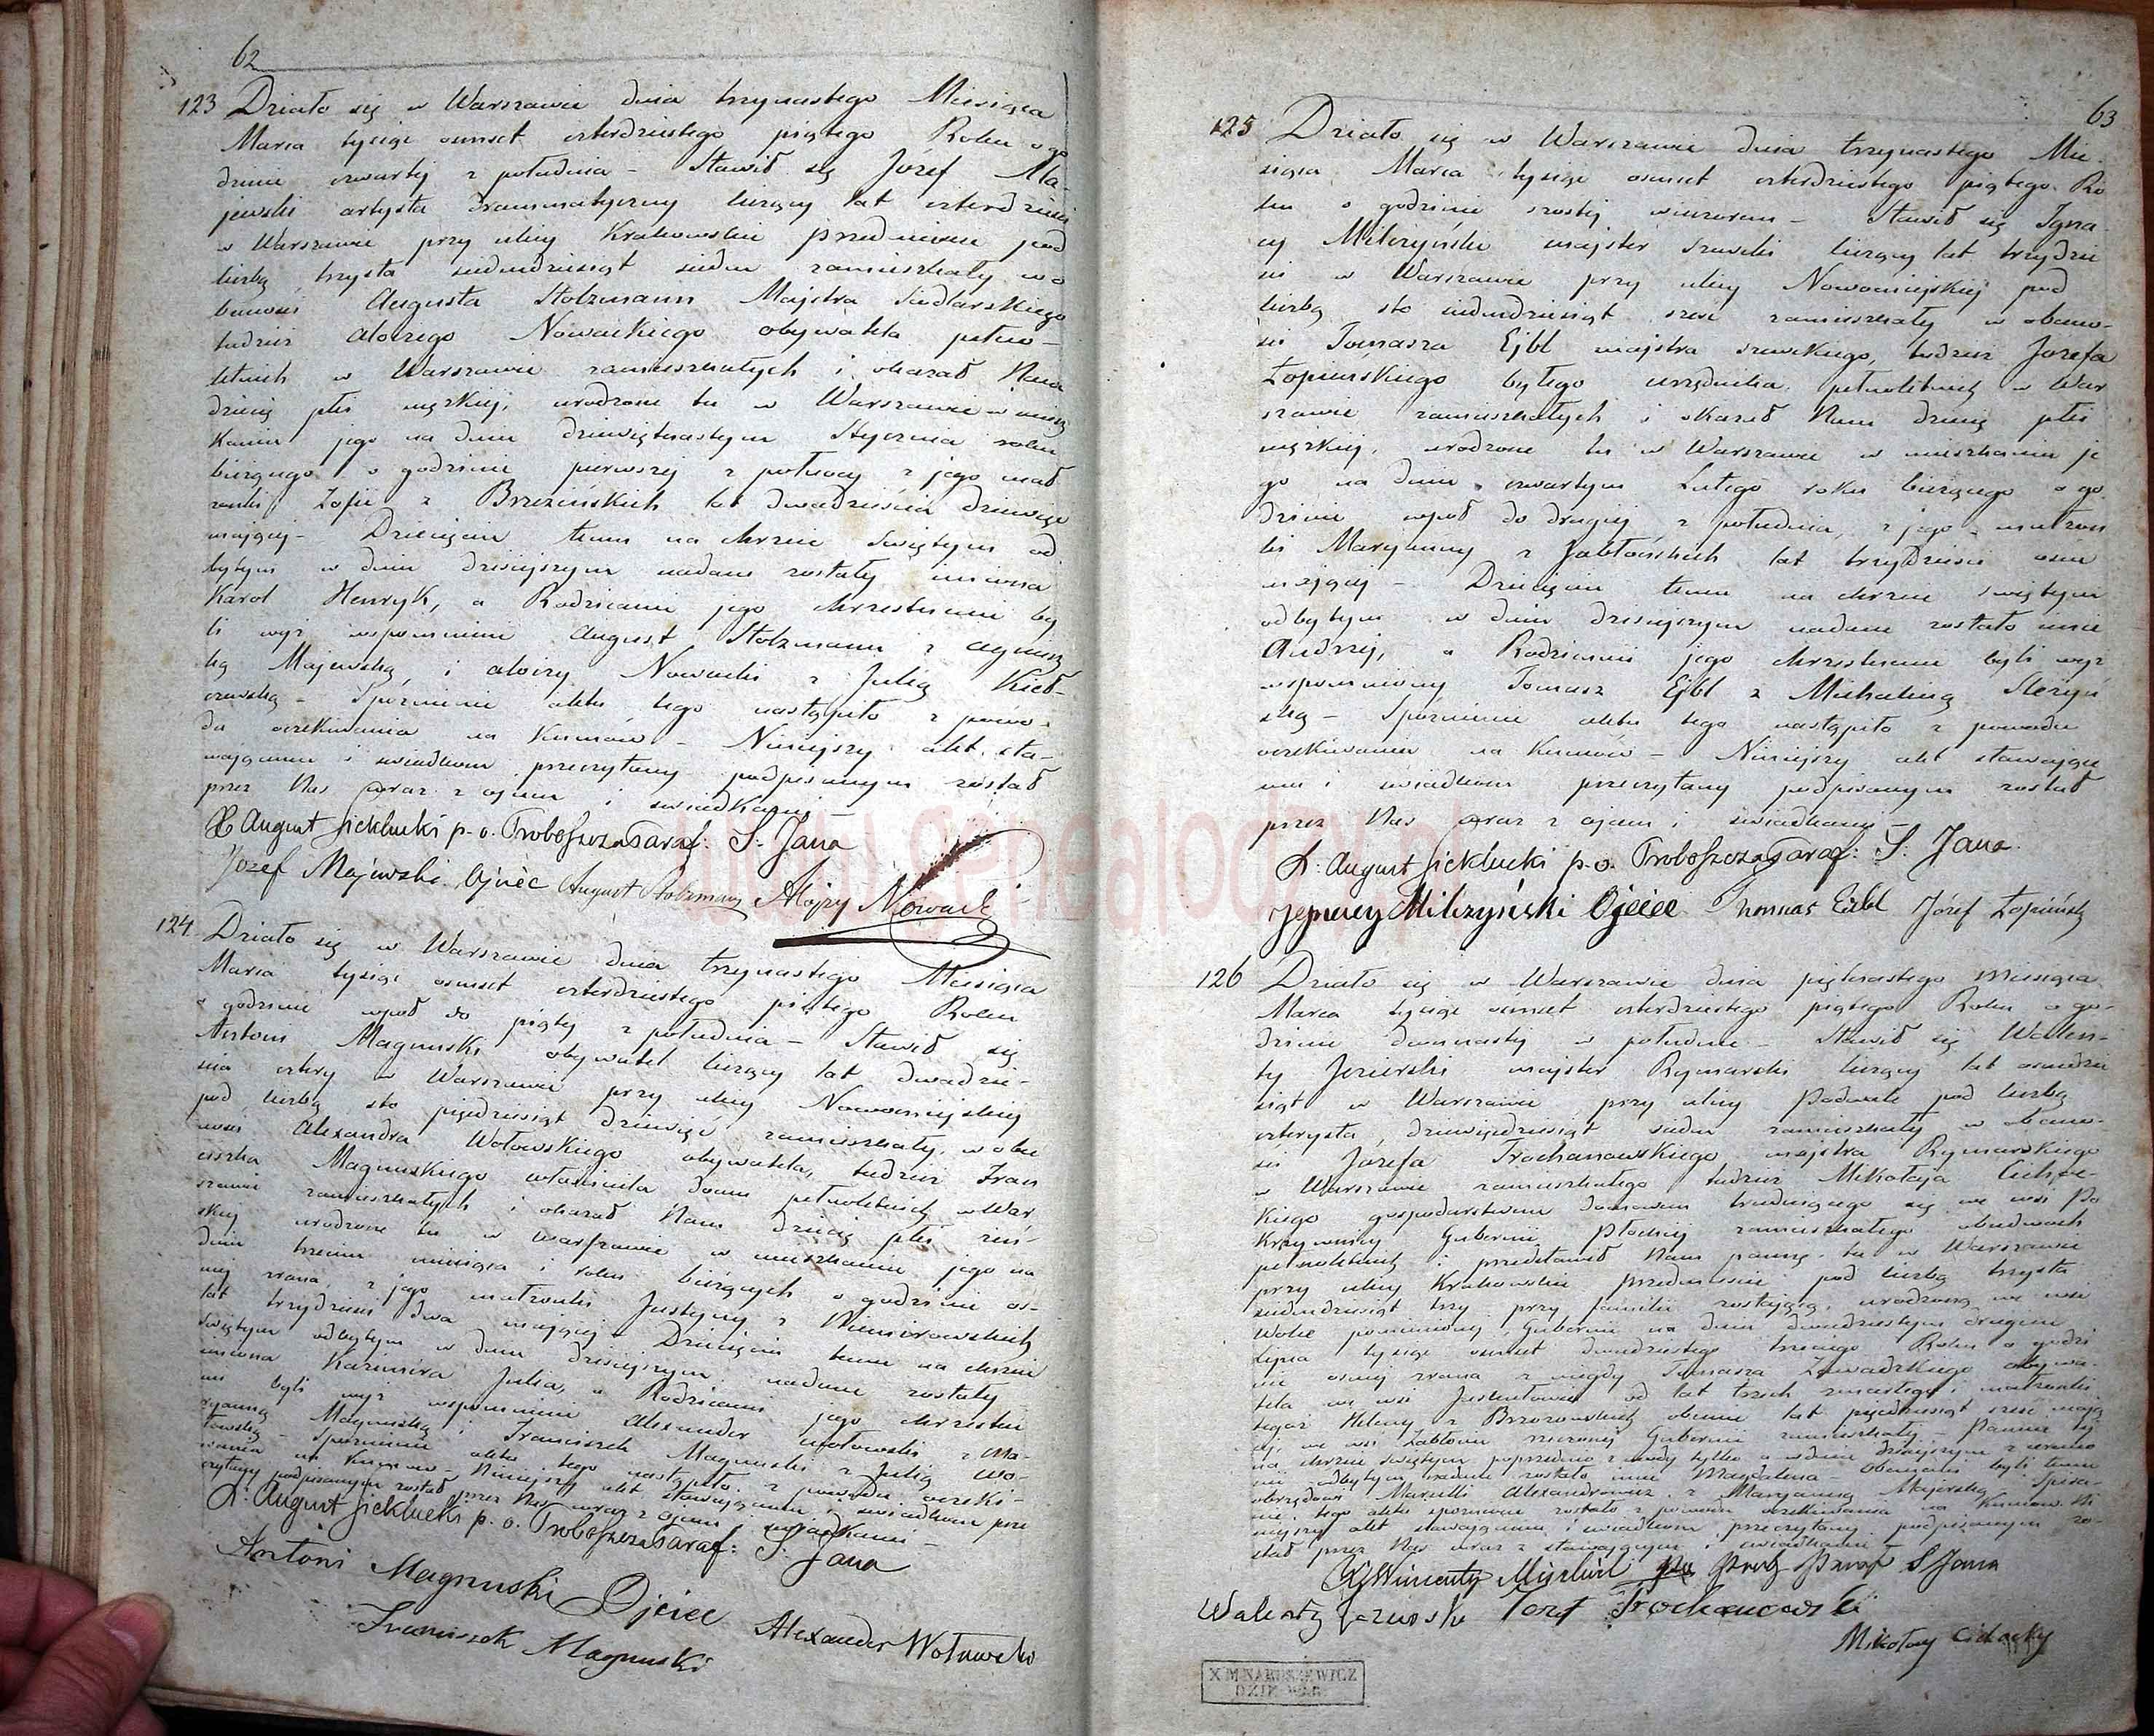 62
123 Działo się w Warszawie dnia trzynastego Miesiąca
Marca tysiąc osmset czterdziestego piątego Roku o go
dzinie czwartej z południa – Stawił się Józef Ma-
jewski artysta Drammatyczny liczący lat czterdzieści
w Warszawie przy ulicy Krakowskie przedmieście pod
liczbą trzysta siedmdziesiąt siedm zamieszkały w o
becności Augusta Stolzmann Majstra Siodlarskiego
tudzież Aloizego Nowackiego obywatela pełno-
letnich w Warszawie zamieszkałych i okazał Nam
dziecię płci męzkiej, urodzone tu w Warszawie w miesz
kaniu jego na dniu dziewiętnastym Stycznia roku
bieżącego o godzinie pierwszej z północy z jego mał
żonki Zofii z Brzezińskich lat dwadzieścia dziewięć
mającej – Dziecięciu temu na chrzcie Świętym od
bytym w dniu dzisiejszym nadane zostały imiona
Karol Henryk, a Rodzicami jego chrzestnemi by
li wyż wspomnieni August Stolzmann z Agniesz
ką Majewską, i Aloizy Nowacki z Julią Kieł-
czewską – Spóźnienie aktu tego nastąpiło z powo-
du oczekiwania na Kumów – Niniejszy akt sta-
wającemu i świadkom przeczytany podpisanym został
przez Nas wraz z ojcem i świadkami
X August Sieklucki p. o. Proboszcza Paraf: S. Jana
Jozef Majewski Ojciec August Stolzmann Alojzy Nowacki
124 Działo się w Warszawie dnia trzynastego Miesiąca
Marca tysiąc osmset czterdziestego piątego Roku
o godzinie wpół do piątej z południa – Stawił się
Antoni Magnuski obywatel liczący lat dwadzie-
ścia cztery w Warszawie przy ulicy Nowomiejskiej
pod liczbą sto pięćdziesiąt dziewięć zamieszkały, w obec
ności Alexandra Wołowskiego obywatela, tudzież Fran
ciszka Magnuskiego właściciela domu pełnoletnich w War
szawie zamieszkałych i okazał Nam dziecię płci żeń-
skiej urodzone tu w Warszawie w mieszkaniu jego na
dniu trzecim miesiąca i roku bieżących o godzinie ós-
mej zrana, z jego małżonki Justyny z Niemirowskich
lat trzydzieści dwa mającej – Dziecięciu temu na chrzcie
Świętym odbytym w dniu dzisiejszym nadane zostały
imiona Kazimira Julia, a Rodzicami jego chrzestne
mi byli wyż wspomnieni Alexander Wołowski z Ma-
ryanną Magnuską i Franciszek Magnuski z Julią Wo-
łowską – Spóźnienie aktu tego nastąpiło z powodu oczeki-
wania na Kumów – Niniejszy akt stawającemu i świadkom prze
czytany podpisanym został przez Nas wraz z ojcem i świadkami –
X. August Sieklucki p. o. Proboszcza Paraf: S. Jana
Antoni Magnuski Ojciec Alexander Wołowski
Franciszek Magnuski
63
125 Działo się w Warszawie dnia trzynastego Mie-
siąca Marca tysiąc osmset czterdziestego piątego Ro
ku o godzinie szostej wieczorem – Stawił się Igna-
cy Milczyński majster szewski liczący lat trzydzie
ści w Warszawie przy ulicy Nowomiejskiej pod
liczbą sto siedmdziesiąt sześć zamieszkały w obecno-
ści Tomasza Ejbl majstra szewckiego, tudzież Józefa
Łopieńskiego byłego urzędnika, pełnoletnich w War
szawie zamieszkałych i okazał Nam dziecię płci
męzkiej, urodzone tu w Warszawie w mieszkaniu je
go na dniu czwartym Lutego roku bieżącego o go
dzinie wpół do drugiej z południa, z jego małżon
ki Maryanny z Jabłońskich lat trzydzieści osm
mającej – Dziecięciu temu na chrzcie Świętym
odbytym w dniu dzisiejszym nadane zostało imie
Andrzej, a Rodzicami jego chrzestnemi byli wyż
wspomniony Tomasz Ejbl z Michaliną Słażyń
ską – Spóźnienie aktu tego nastąpiło z powodu
oczekiwania na Kumów – Niniejszy akt stawające
mu i świadkom przeczytany podpisanym został
przez Nas wraz z ojcem i świadkami –
X. August Sieklucki p. o. Proboszcza Paraf: S. Jana
Jgnacy Milczyński Ojciec Thomas Eibl Józef Łopiński
126 Działo się w Warszawie dnia piętnastego miesiąca
Marca tysiąc osmset czterdziestego piątego Roku o go-
dzinie dwunastej w południe – Stawił się Walen-
ty Jezierski majster Rymarski liczący lat osmdzie
siąt w Warszawie przy ulicy Podwale pod liczbą
czterysta dziewięćdziesiąt siedm zamieszkały w obecno-
ści Józefa Trochanowskiego majstra Rymarskiego
w Warszawie zamieszkałego tudzież Mikołaja Cichoc-
kiego gospodarstwem domowem trudniącego się we wsi Po
krzywnicy Gubernii Płockiej zamieszkałego obudwoch
pełnoletnich i przedstawił Nam pannę tu w Warszawie
przy ulicy Krakowskie przedmieście pod liczbą trzysta
siedmdziesiąt trzy przy familii zostającą, urodzoną we wsi
Wolce pomienionej Gubernii na dniu dwudziestym drugim
Lipca tysiąc osmset dwudziestego trzeciego Roku o godzi
nie osmej zrana z niegdy Tomasza Zawadzkiego obywa-
tela we wsi od lat trzech zmarłego i małżonki
tegoż Heleny z Brzozowskich obecnie lat pięćdziesiąt sześć mają
cej, we wsi Zabłocin rzeczonej Gubernii zamieszkałej – Pannie tej
na chrzcie Świętym poprzednio z wody tylko a w dniu dzisiejszym z ceremo
nii odbytym nadane zostało imie Magdalena – Obecnemi byli temu
obrzędowi Marcelli Alexandrowicz z Maryanną Majewską Spisa-
nie tego aktu spóźnione zostało z powodu oczekiwania na Kumów. Ni
niejszy akt stawającemu i świadkom przeczytany, podpisanym zo-
stał przez Nas wraz z stawającym i świadkami –
X Wincenty p o Prob Paraf S Jana
Walenty Jezierski Józef Trochanowski
Mikołay Cichocky
X M NARUSZEWICZ
DZIK WAR
www.genealodzy.pl